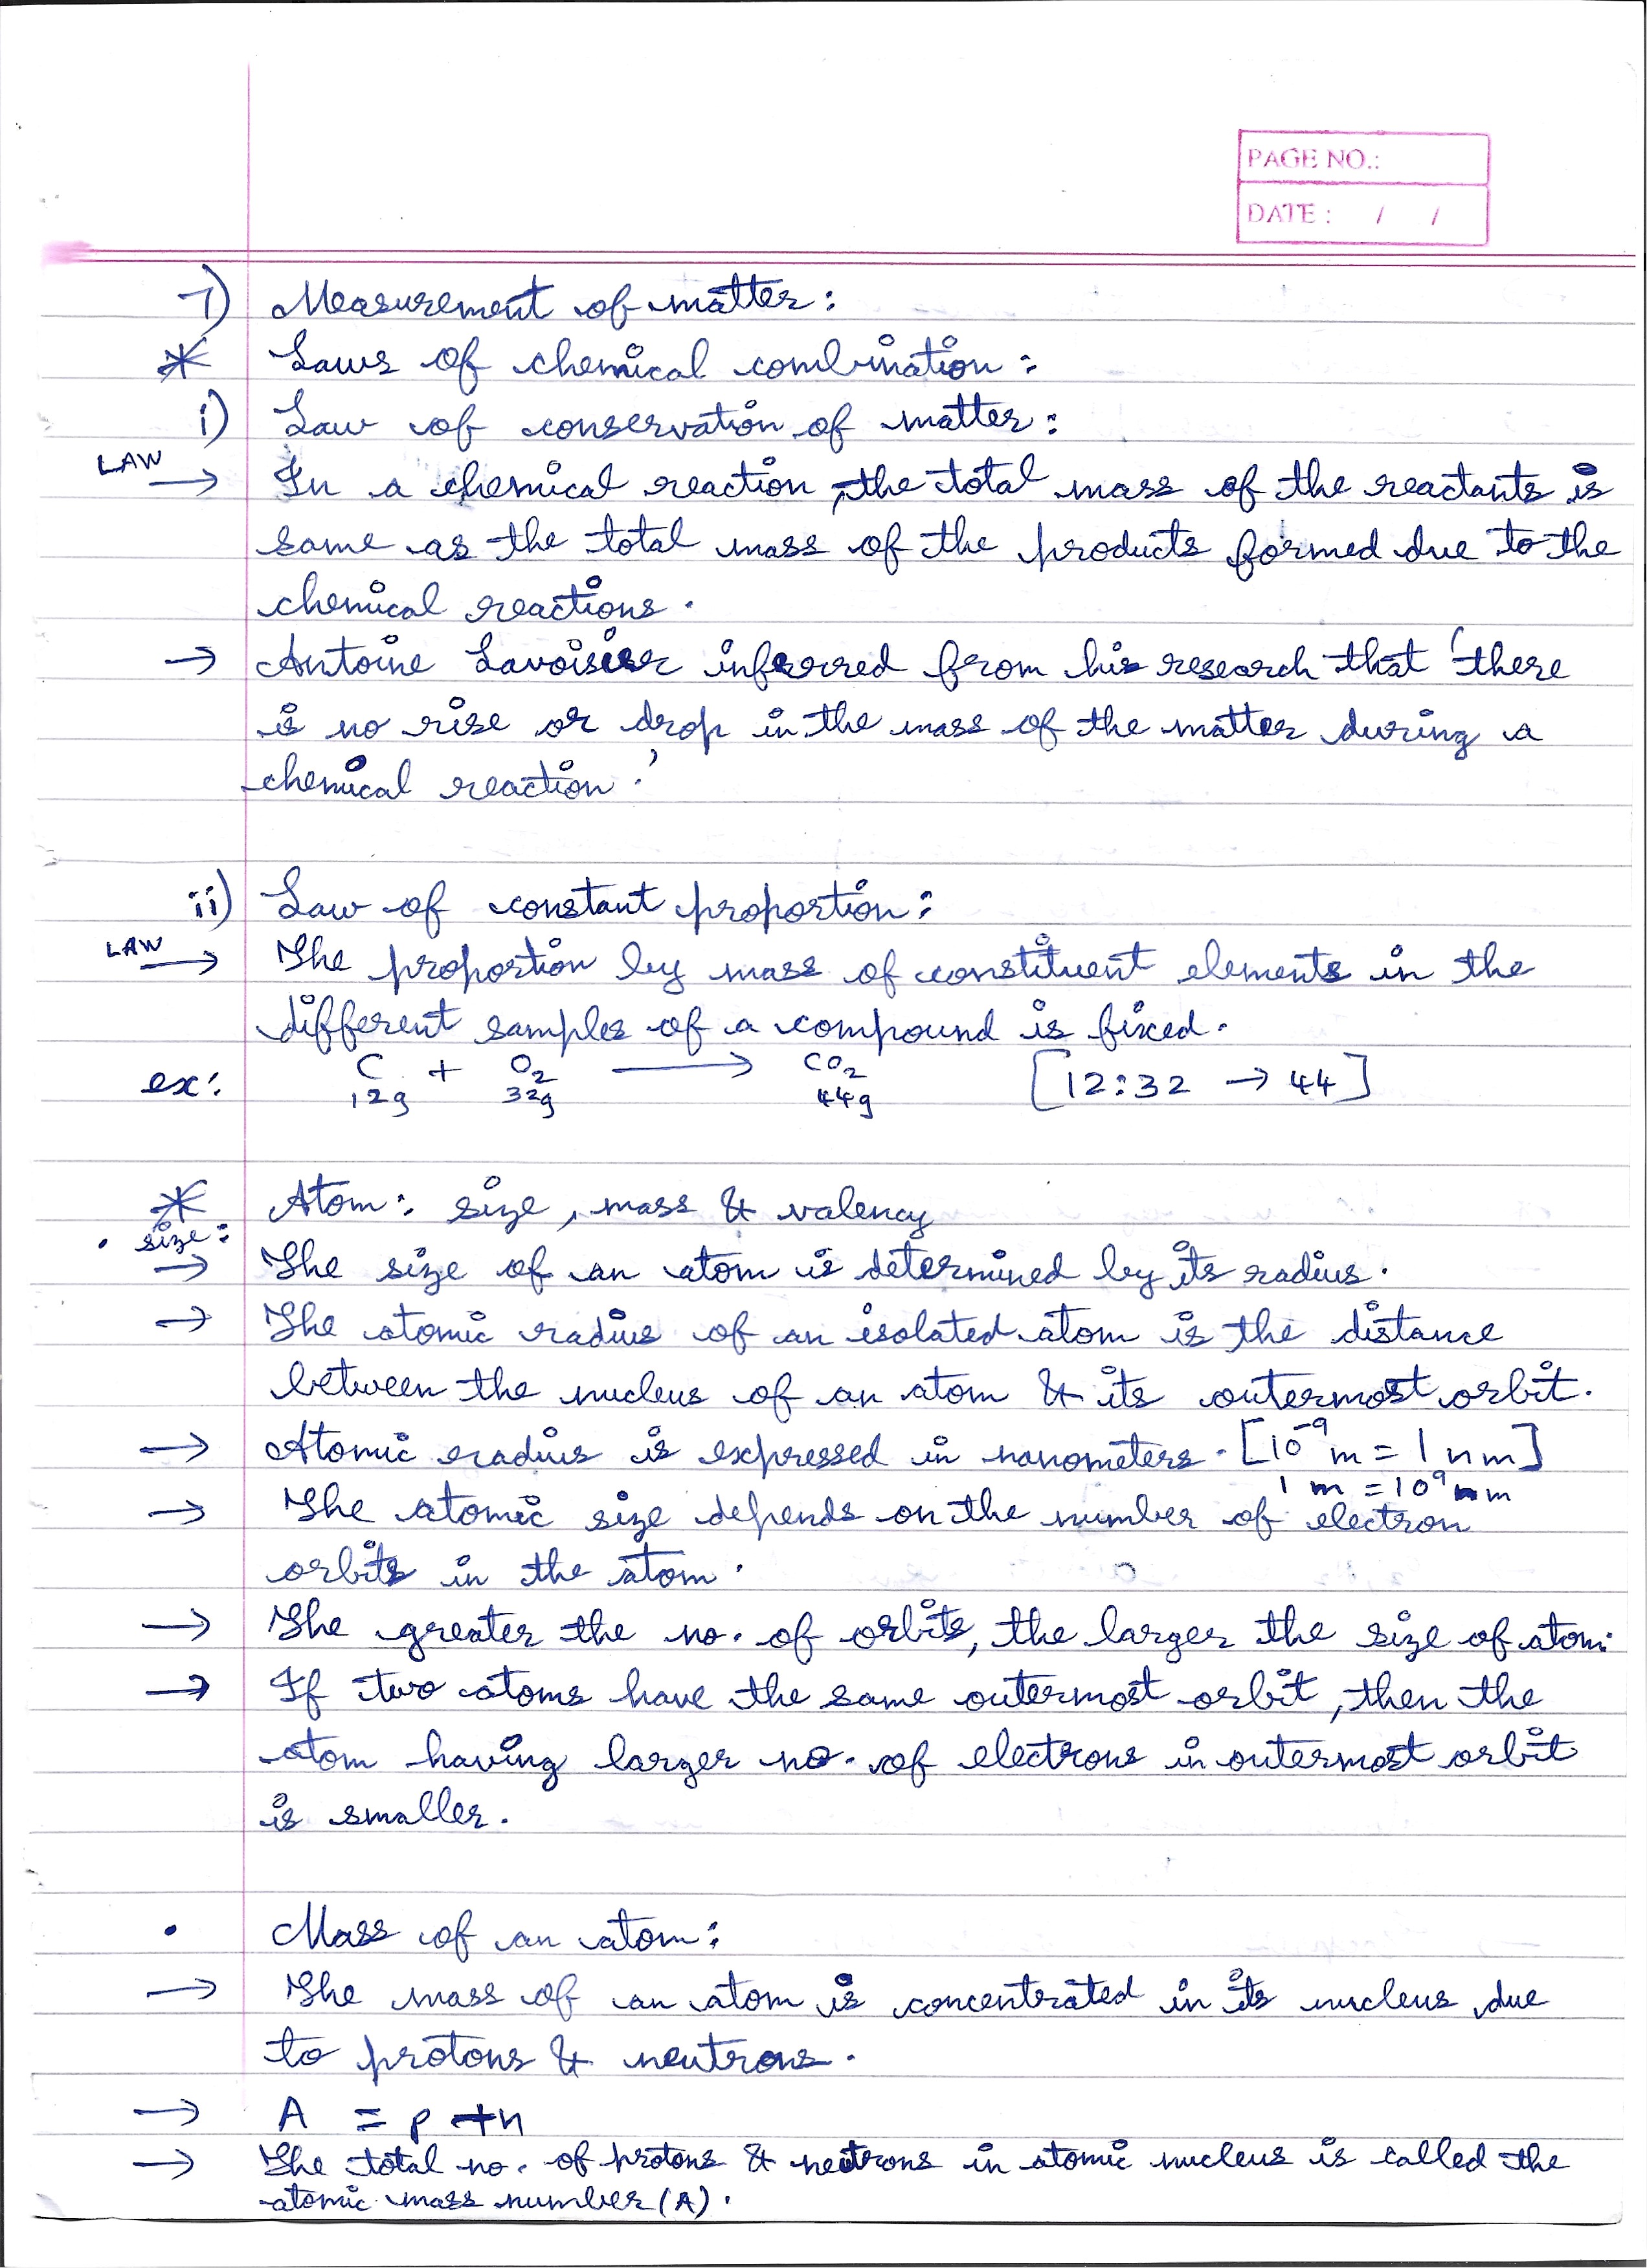 PAGE NO.:
DATE : / /
7) Measurement of matter:
* Laws of chemical combination:
i) Law of conservation of matter:
LAW → In a chemical reaction, the total mass of the reactants is
same as the total mass of the products formed due to the
chemical reactions.
→ Antoine Lavoisier inferred from his research that 'there
is no rise or drop in the mass of the matter during a
chemical reaction.'
ii) Law of constant proportion:
LAW → The proportion by mass of constituent elements in the
different samples of a compound is fixed.
ex: C + O₂ → CO₂ [12:32 → 44]
12g 32g 44g
* Atom: size, mass & valency
• size:
→ The size of an atom is determined by its radius.
→ The atomic radius of an isolated atom is the distance
between the nucleus of an atom & its outermost orbit.
→ Atomic radius is expressed in nanometers. [10⁻⁹m = 1nm]
1 m = 10⁹nm
→ The atomic size depends on the number of electron
orbits in the atom.
→ The greater the no. of orbits, the larger the size of atom.
→ If two atoms have the same outermost orbit, then the
atom having larger no. of electrons in outermost orbit
is smaller.
• Mass of an atom:
→ The mass of an atom is concentrated in its nucleus due
to protons & neutrons.
→ A = p + n
→ The total no. of protons & neutrons in atomic nucleus is called the
atomic mass number (A).